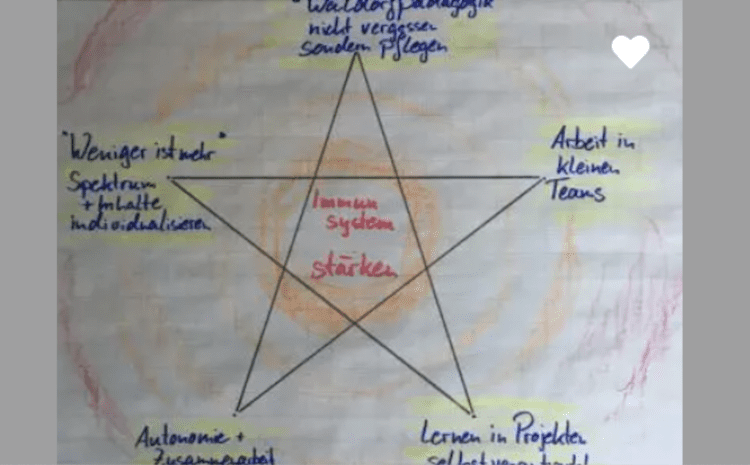 "Waldorfpädagogik
nicht vergessen
sondern pflegen
"Weniger ist mehr"
Spektrum
+ Inhalte
individualisieren
Arbeit in
kleinen
Teams
Immun
system
stärken
Autonomie +
Zusammenarbeit
Lernen in Projekten